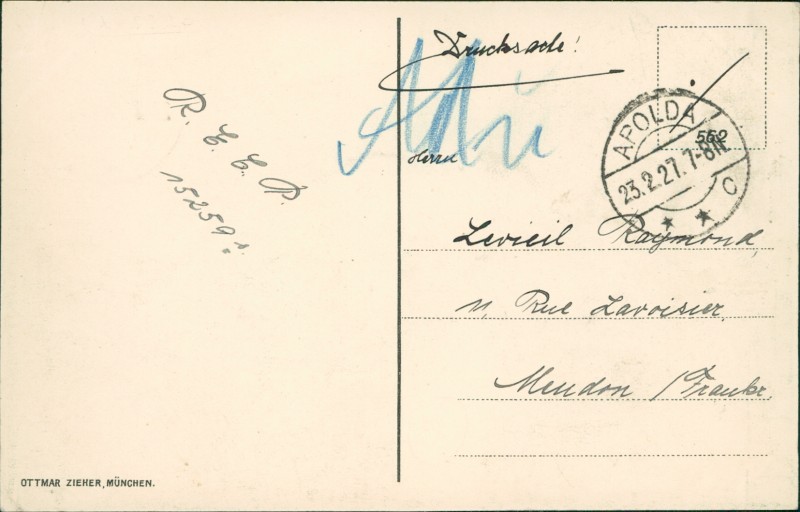 R. E. C. P.
15259
OTTMAR ZIEHER, MÜNCHEN.
Drucksache!
552
APOLDA
23.2.27. 7-8N.
C
Herrn
Levieil Raymond,
11, Rue Lavoisier,
Meudon /Frankr.